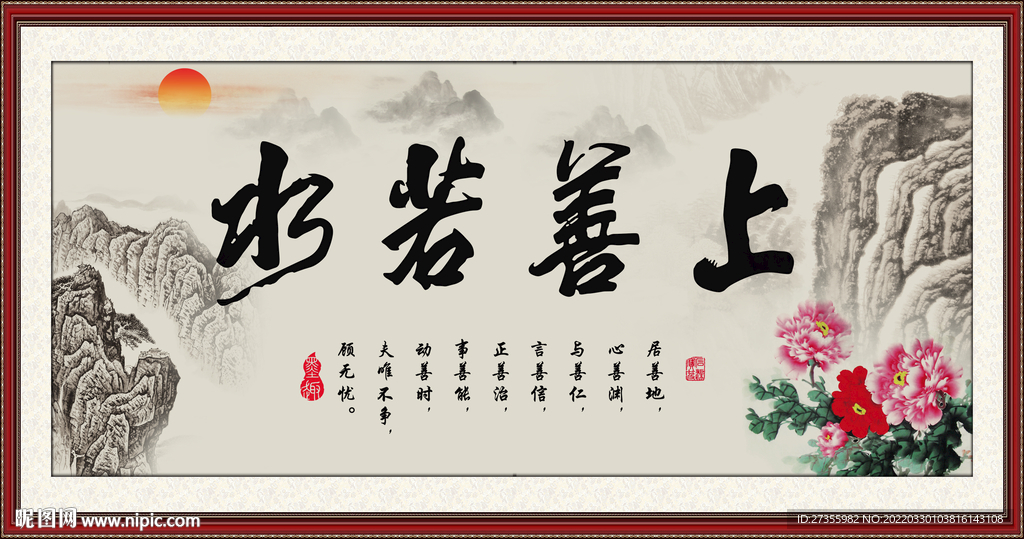 上善若水
居善地，
心善渊，
与善仁，
言善信，
正善治，
事善能，
动善时，
夫唯不争，
顾无忧。
墨趣
昵图网 www.nipic.com
ID:27355982 NO:20220330103816143108